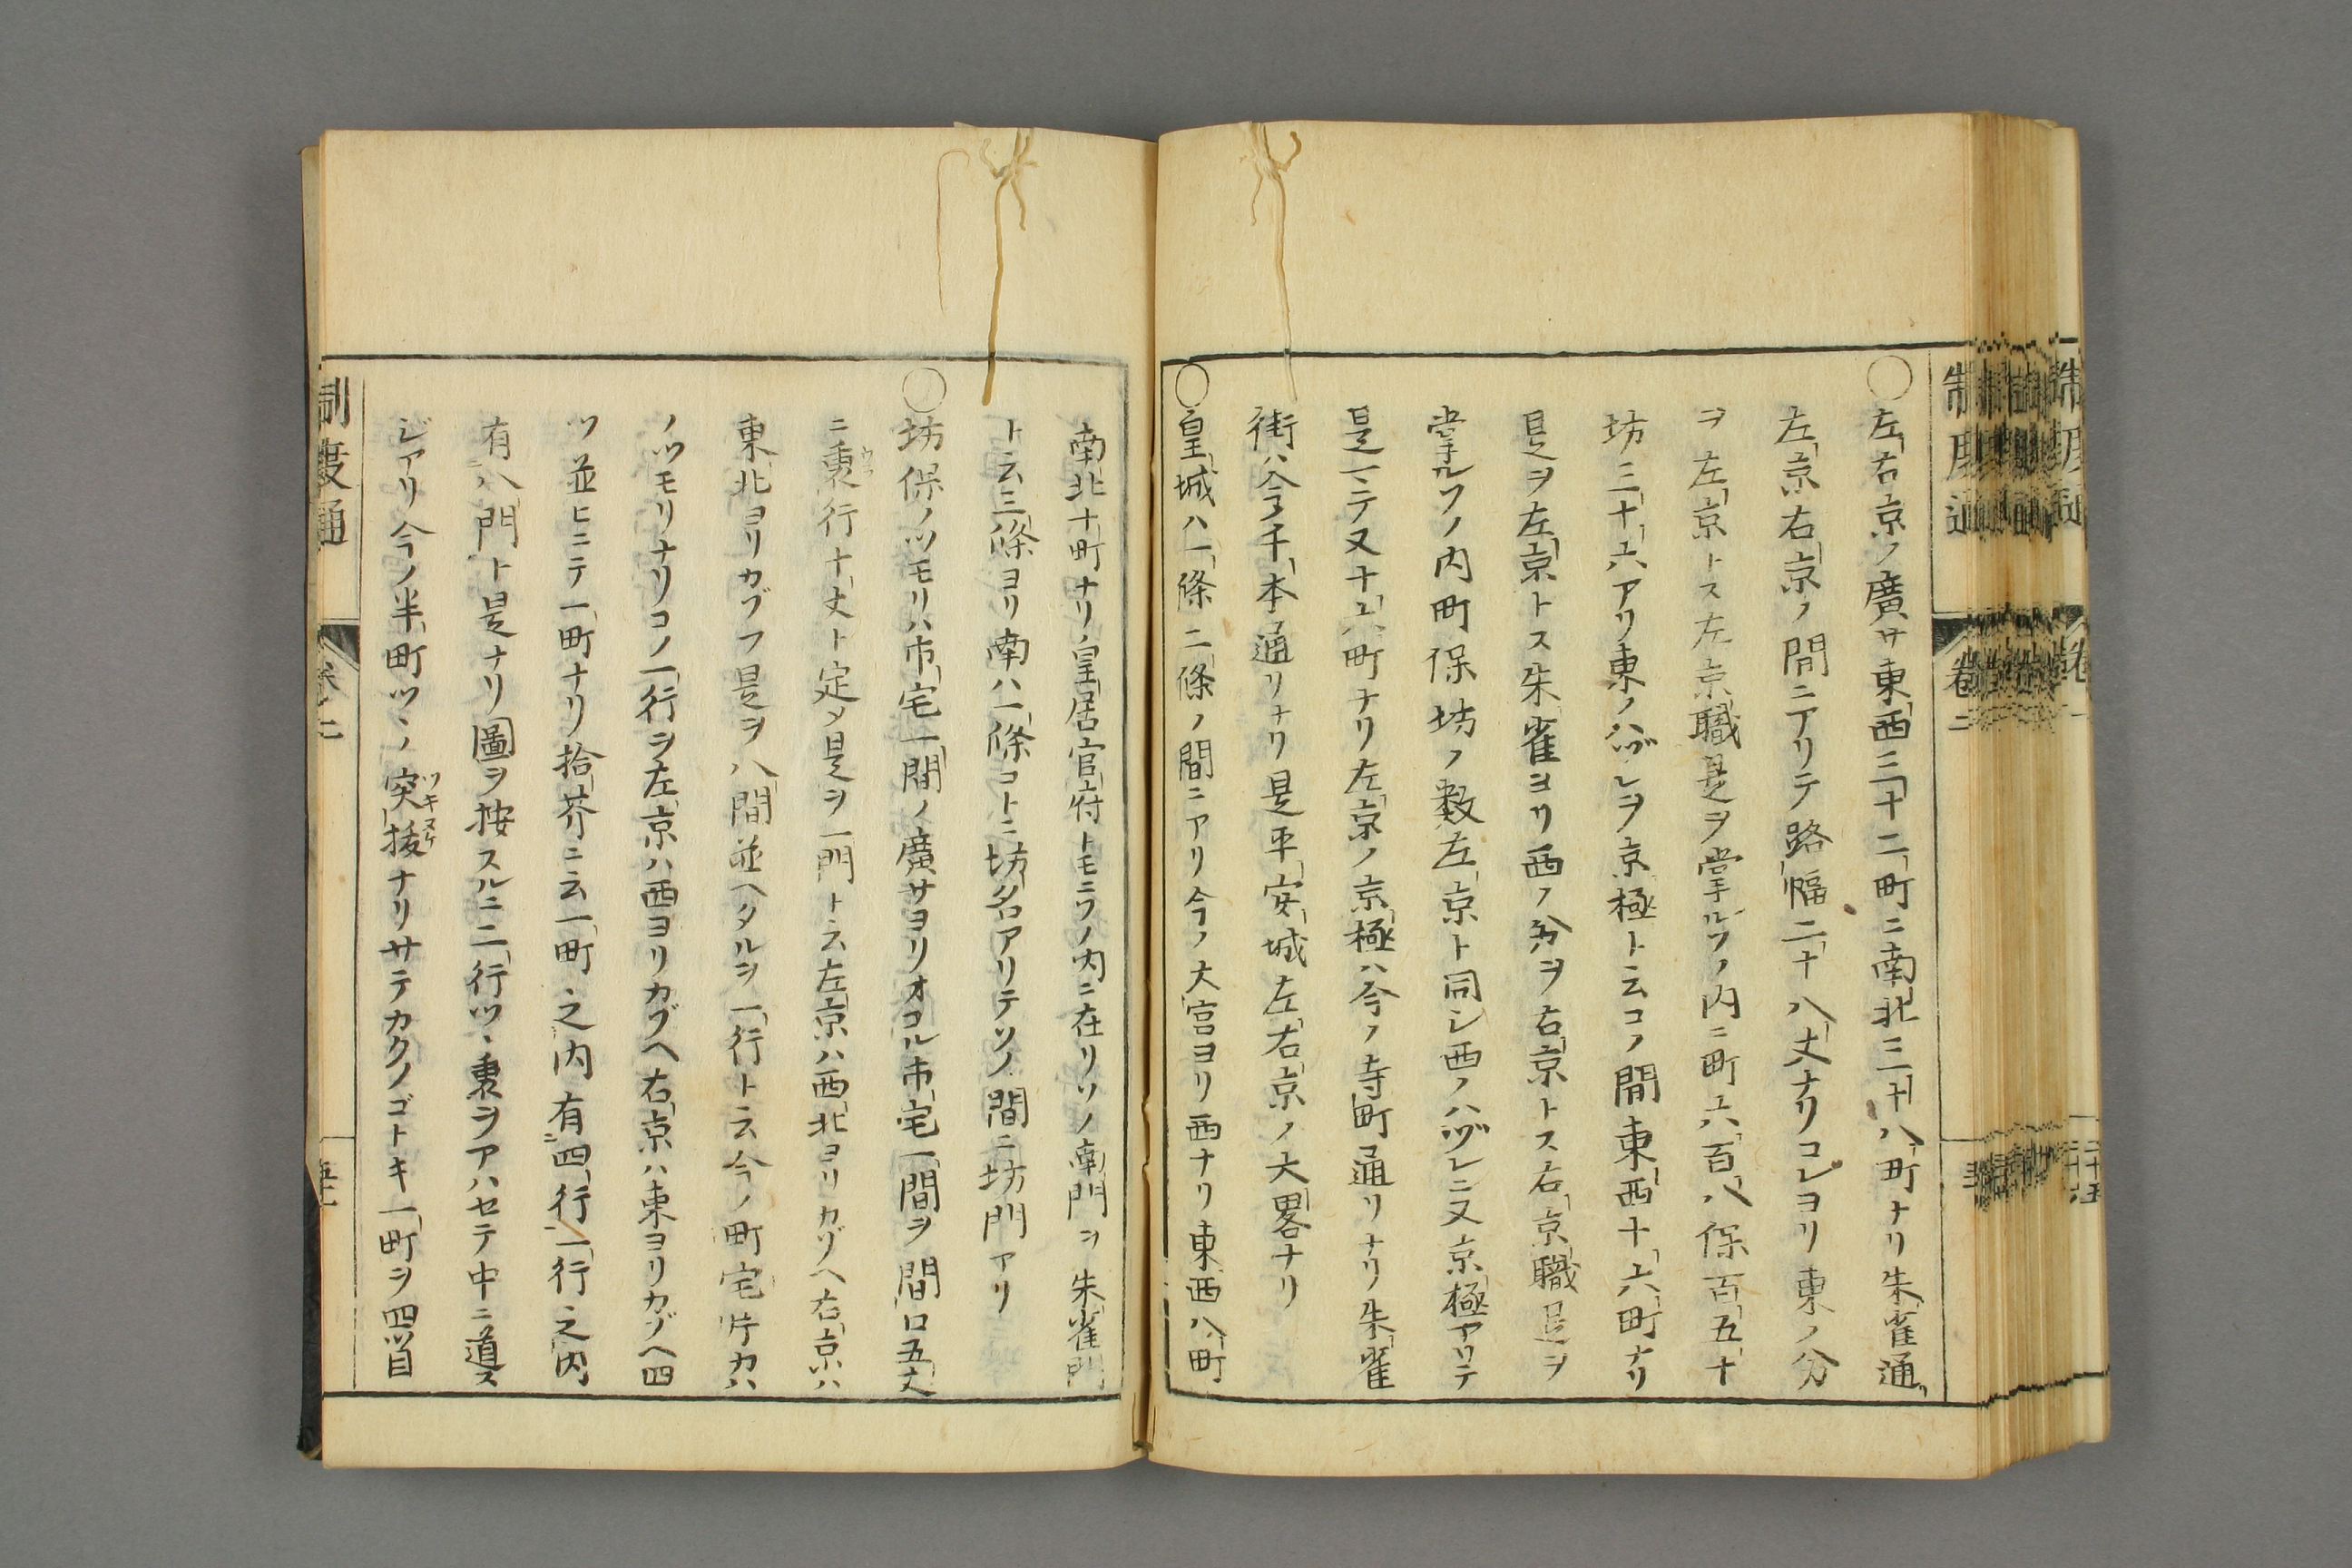 ○左右京ノ廣サ東西三十二町ニ南北三十八町ナリ朱雀通
左京右京ノ間ニアリテ路幅二十八丈ナリコレヨリ東ノ分
ヲ左京トス左京職是ヲ掌ルソノ内ニ町六百八保百五十
坊三十六アリ東ノハヅレヲ京極ト云コノ間東西十六町ナリ
是ヲ左京トス朱雀ヨリ西ノ分ヲ右京トス右京職是ヲ
掌ルソノ内町保坊ノ数左京ト同シ西ノハヅレニ又京極アリテ
是ニテ又十六町ナリ左京ノ京極ハ今ノ寺町通リナリ朱雀
街ハ今ノ千本通リナリ是平安城左右京ノ大畧ナリ
○皇城ハ一條二條ノ間ニアリ今ノ大宮ヨリ西ナリ東西八町
南北十町ナリ皇居官府トモニソノ内ニ在リソノ南門ヲ朱雀門
ト云三條ヨリ南ハ一條コトニ坊名アリテソノ間ニ坊門アリ
○坊保ノツモリハ市宅一間ノ廣サヨリオコル市宅一間ヲ間口五丈
ニ奥行十丈ト定メ是ヲ一門ト云左京ハ西北ヨリカゾヘ右京ハ
東北ヨリカゾフ是ヲ八間並ヘタルヲ一行ト云今ノ町宅片カハ
ノツモリナリコノ一行ヲ左京ハ西ヨリカゾヘ右京ハ東ヨリカゾヘ四
ツ並ヒニテ一町ナリ拾芥ニ云一町之内有四行一行之内
有八門ト是ナリ圖ヲ按スルニ二行ツヽ裏ヲアハセテ中ニ道ス
ジアリ今ノ半町ツヽノ突抜ツキヌケナリサテカクノゴトキ一町ヲ四ツ目
制度通
卷二